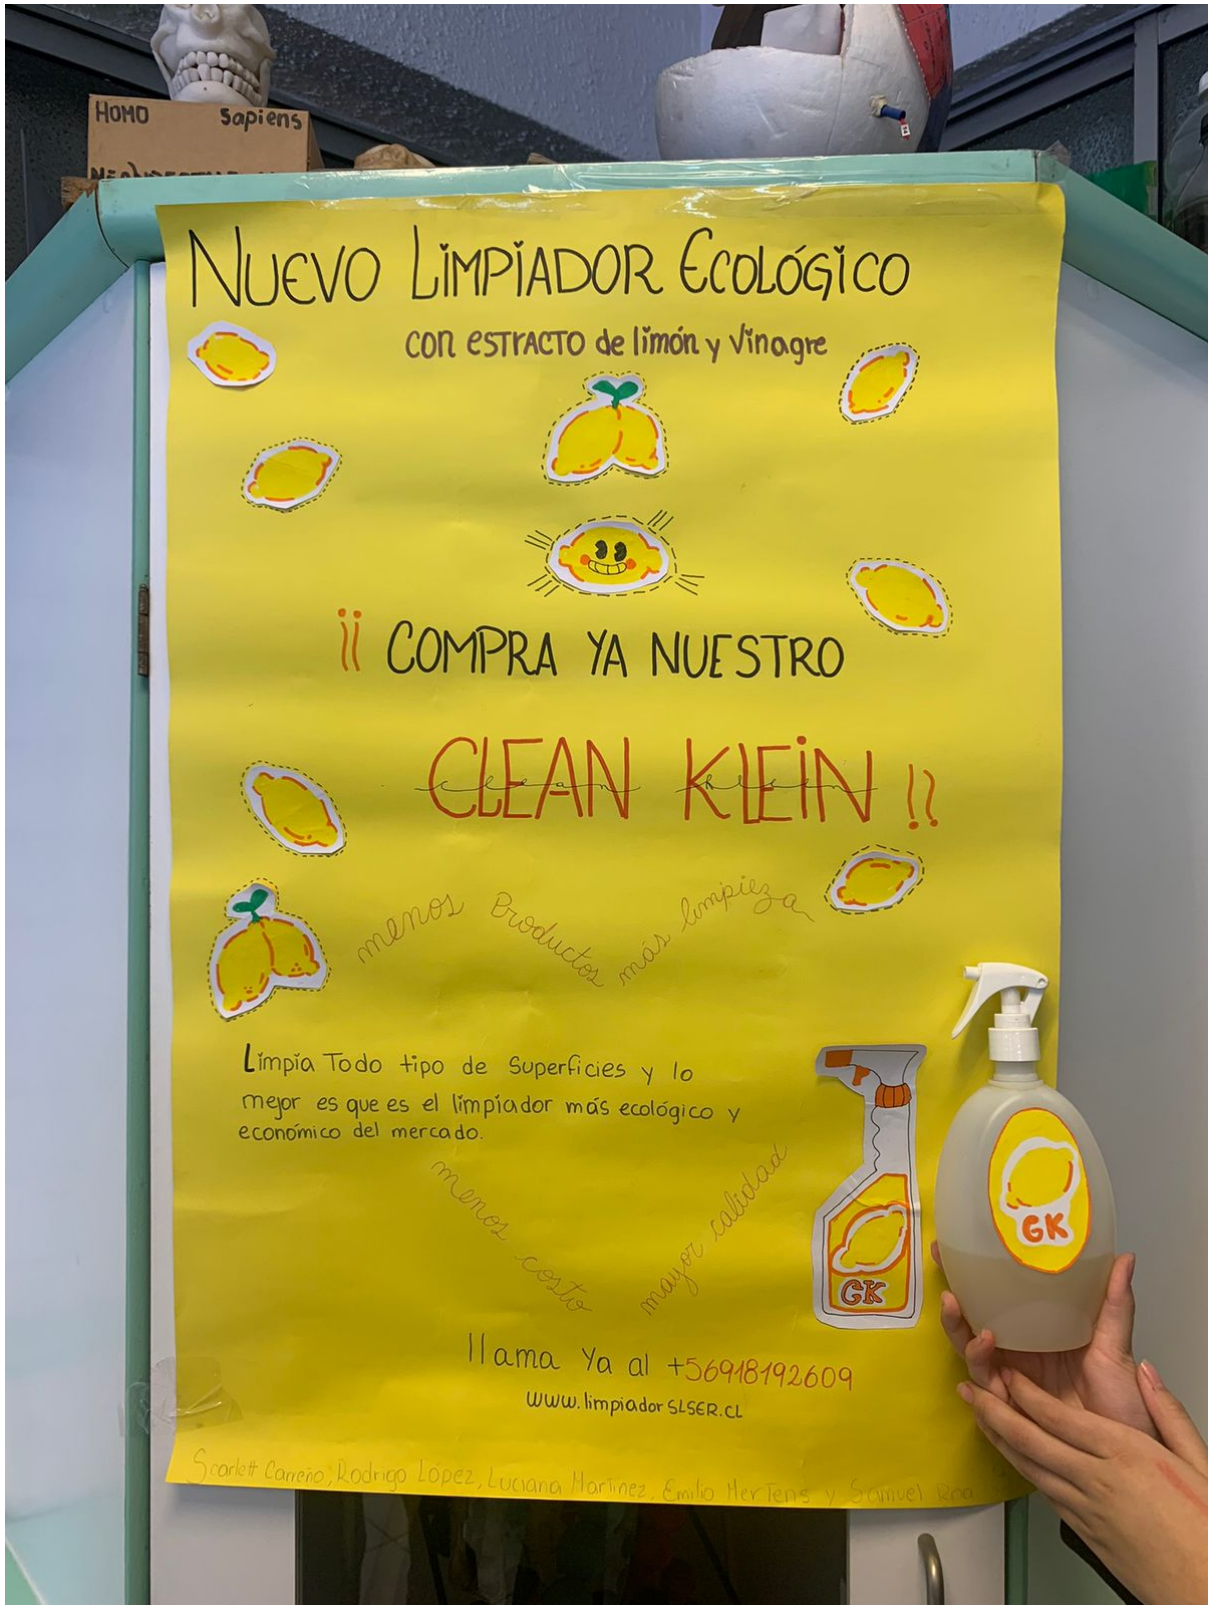 HOMO Sapiens
NUEVO LIMPIADOR ECOLÓGICO
con ESTRACTO de limón y Vinagre
¡¡ COMPRA YA NUESTRO
CLEAN KLEIN !!
menos Productos más limpieza
Limpia Todo tipo de Superficies y lo
mejor es que es el limpiador más ecológico y
económico del mercado.
menos costo mayor calidad
GK
GK
llama Ya al +56918192609
www.limpiadorSLSER.CL
Scarlett Carreño, Rodrigo López, Luciana Martínez, Emilio MerTens y Samuel